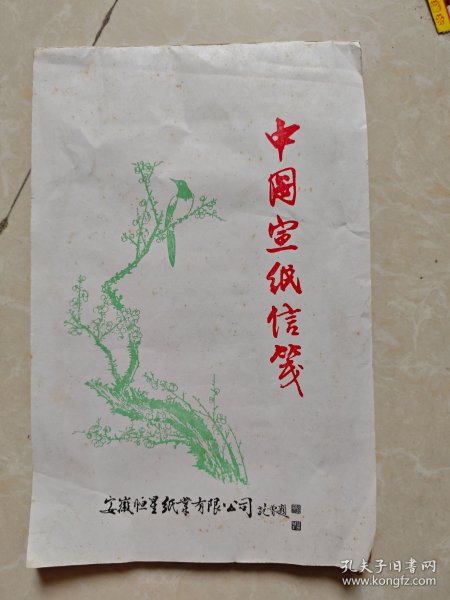 中国宣纸信笺
安徽恒星纸業有限公司
孔夫子旧书网
www.kongfz.com